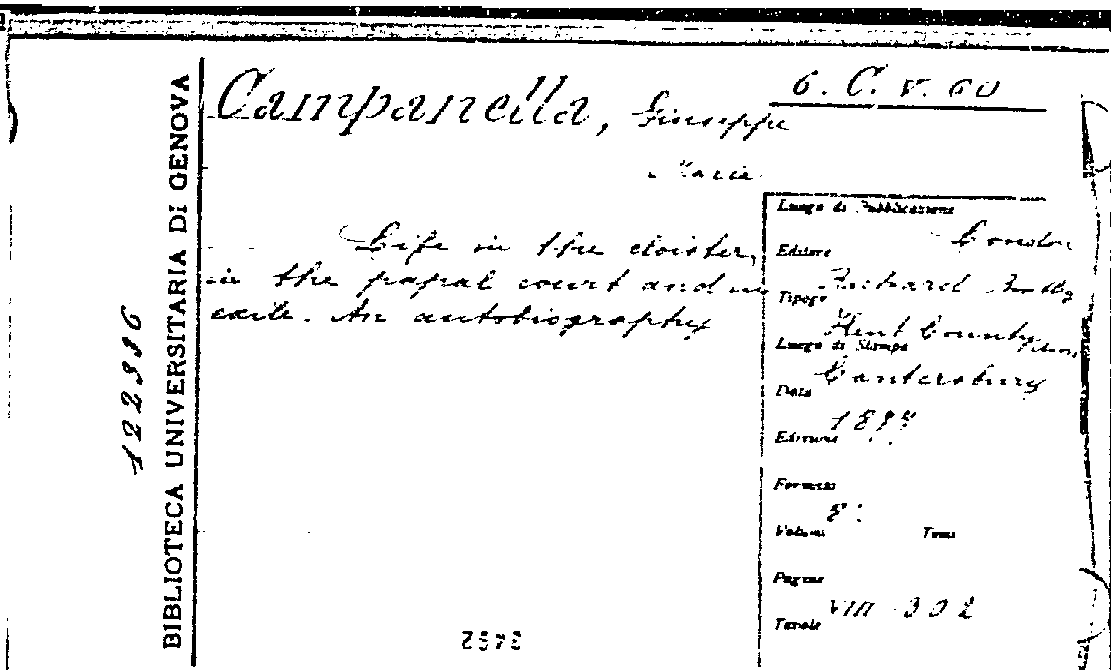 BIBLIOTECA UNIVERSITARIA DI GENOVA
6. C. V. 60
Campanella, Giuseppe
Maria
Life in the cloister,
in the papal court and in
exile. An autobiography
Luogo di Pubblicazione
London
Editore
Richard
Tipogr
Kent County
Luogo di Stampa
Canterbury
Data
Edizione
Formato
8°
Volumi Tomi
Pagine
VIII-302
Tavole